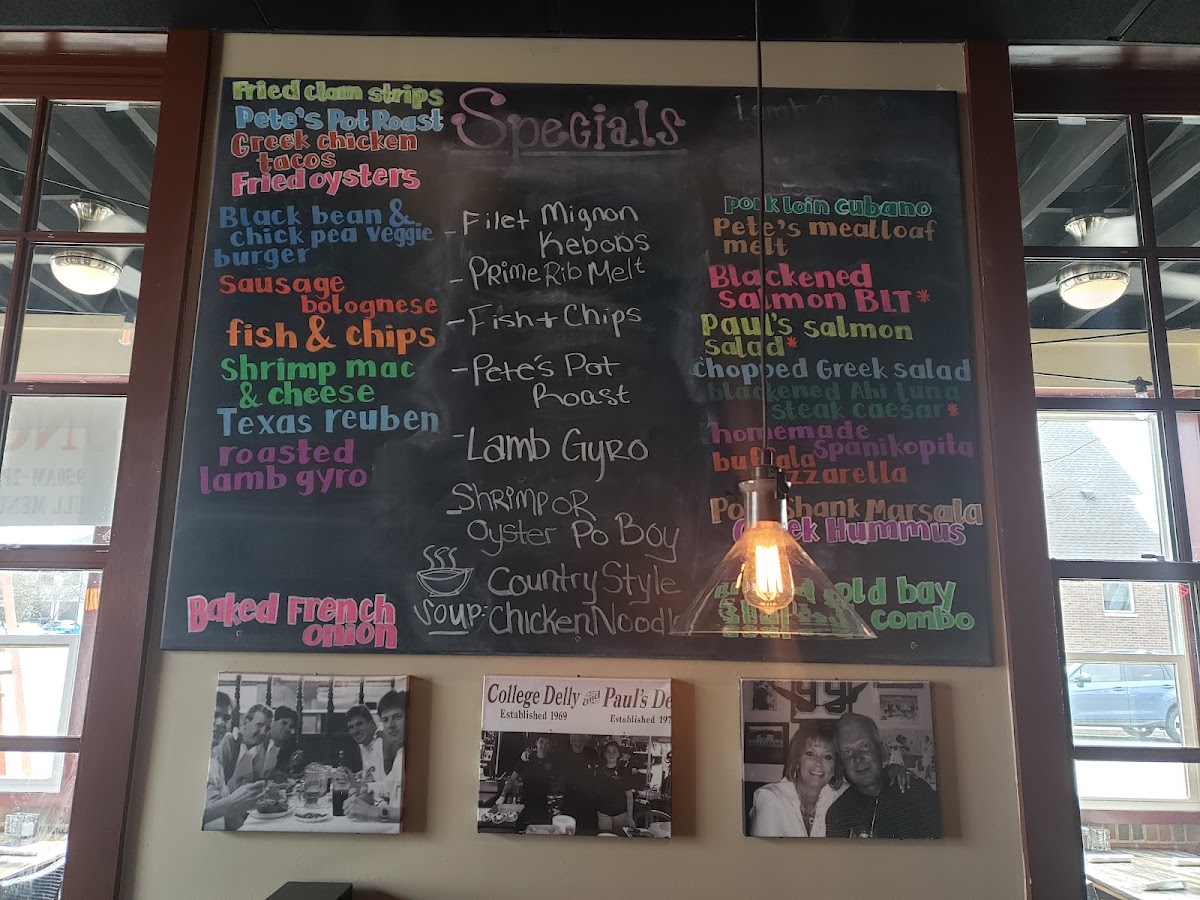 Fried clam strips
Pete's Pot Roast
Greek chicken
tacos
Fried oysters
Black bean &
chick pea veggie
burger
Sausage
bolognese
fish & chips
Shrimp mac
& cheese
Texas reuben
roasted
lamb gyro
Baked French
onion
Specials
- Filet Mignon
Kebobs
- Prime Rib Melt
- Fish + Chips
- Pete's Pot
Roast
- Lamb Gyro
- Shrimp or
Oyster Po Boy
Soup: Country Style
Chicken Noodle
Lamb
pork loin cubano
Pete's meatloaf
melt
Blackened
salmon BLT*
Paul's salmon
salad*
chopped Greek salad
blackened Ahi tuna
steak caesar*
homemade
Spanikopita
buffala
mozzarella
Pork Shank Marsala
Greek Hummus
old bay
combo
College Delly and Paul's De
Established 1969
Established 197
9:30AM-2P
ULL MENU